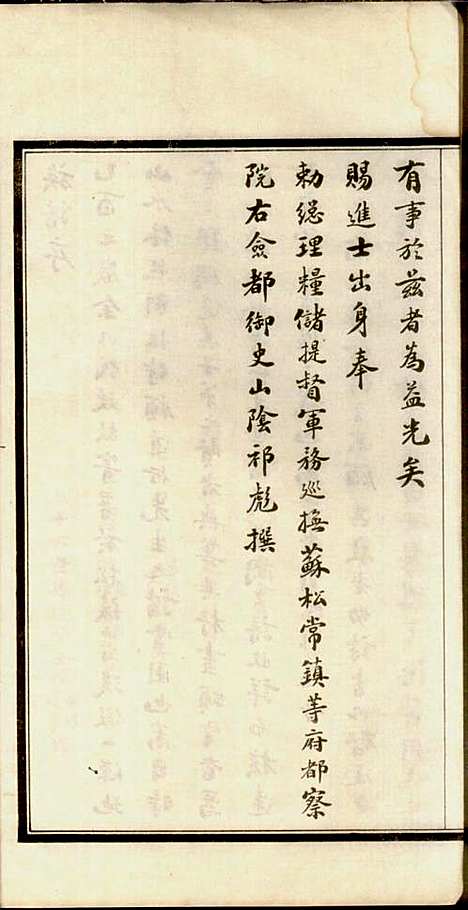 有事於茲者為益光矣
賜進士出身奉
勅總理糧儲提督軍務巡撫蘇松常鎮等府都察
院右僉都御史山陰祁彪撰